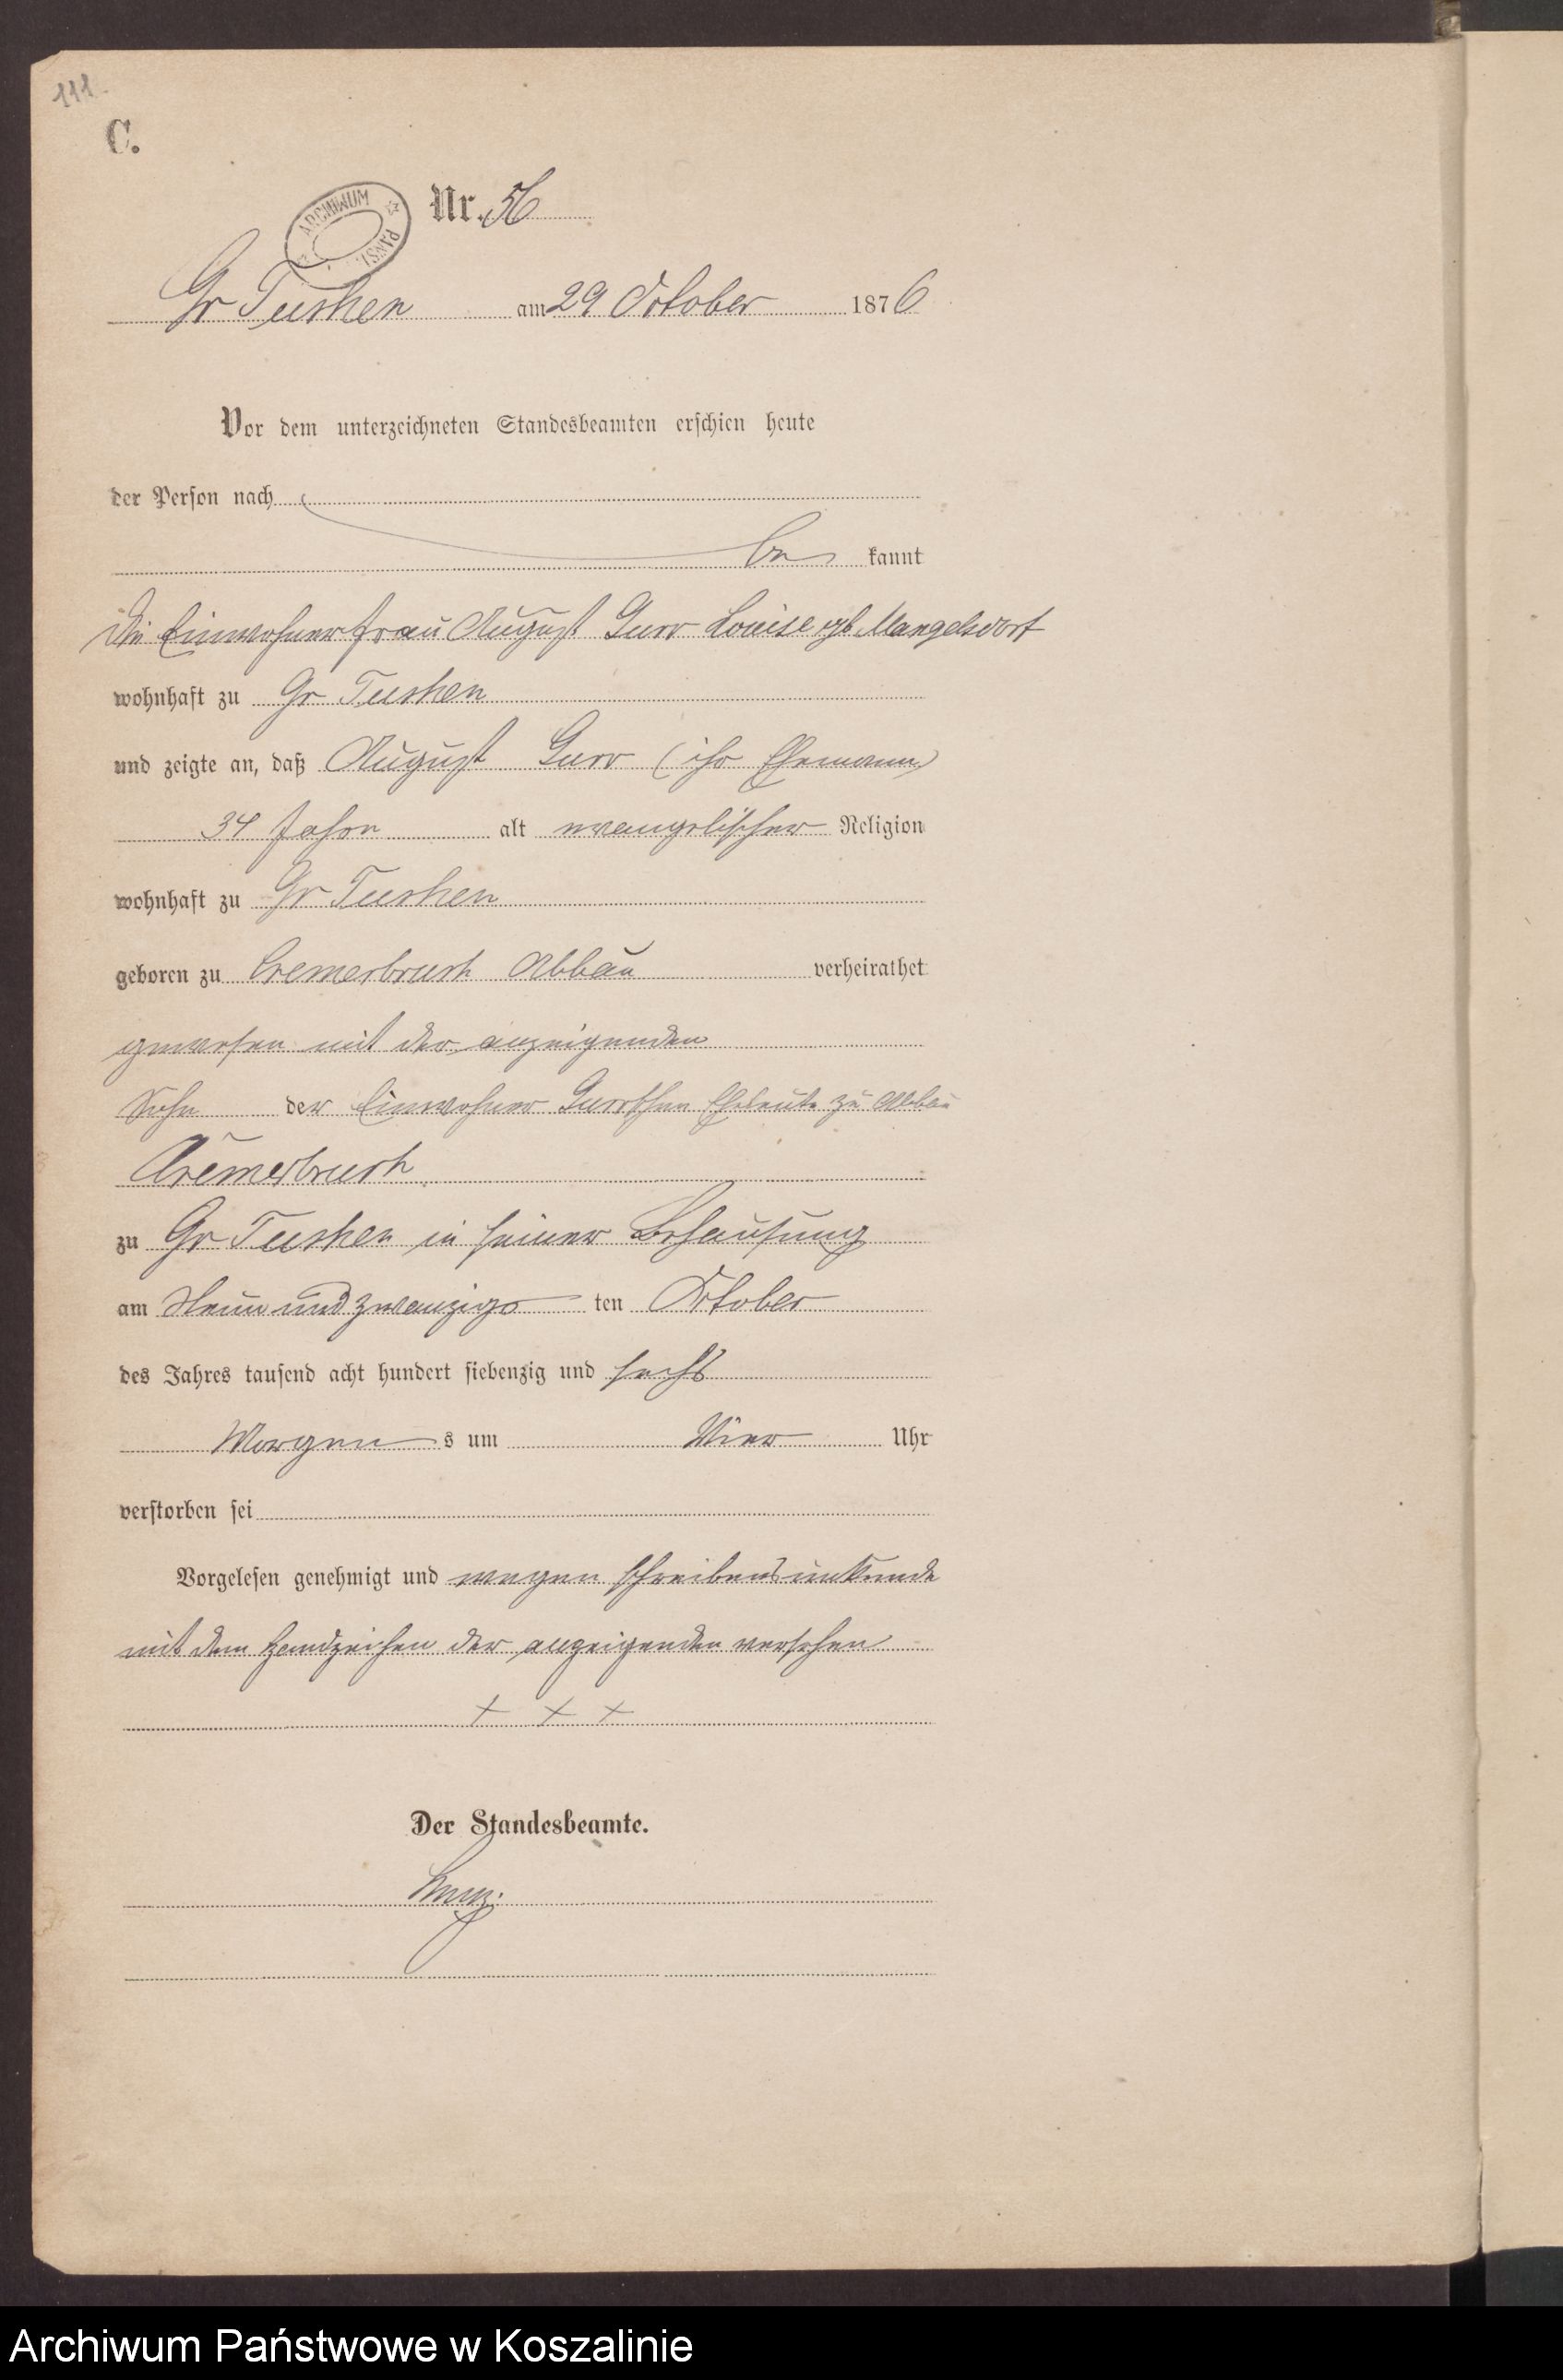 111
C.
ARCHIWUM PAŃST.
Nr. 56
Gr Tuchen am 29 October 1876
Vor dem unterzeichneten Standesbeamten erschien heute
der Person nach
be kannt
die Einwohnerfrau August Gurr Louise geb Mangelsdorf
wohnhaft zu Gr Tuchen
und zeigte an, daß August Gurr (ihr Ehemann)
34 Jahre alt evangelischer Religion
wohnhaft zu Gr Tuchen
geboren zu Cremerbruch Abbau verheirathet
gewesen mit der anzeigenden
Sohn der Einwohner Gurrschen Eheleute zu Abbau
Cremerbruch
zu Gr Tuchen in seiner Behausung
am Neun und zwanzigs ten October
des Jahres tausend acht hundert siebenzig und sechs
Morgen s um Vier Uhr
verstorben sei
Vorgelesen genehmigt und wegen schreibensunkunde
mit dem Handzeichen der anzeigenden versehen
+ + +
Der Standesbeamte.
Archiwum Państwowe w Koszalinie